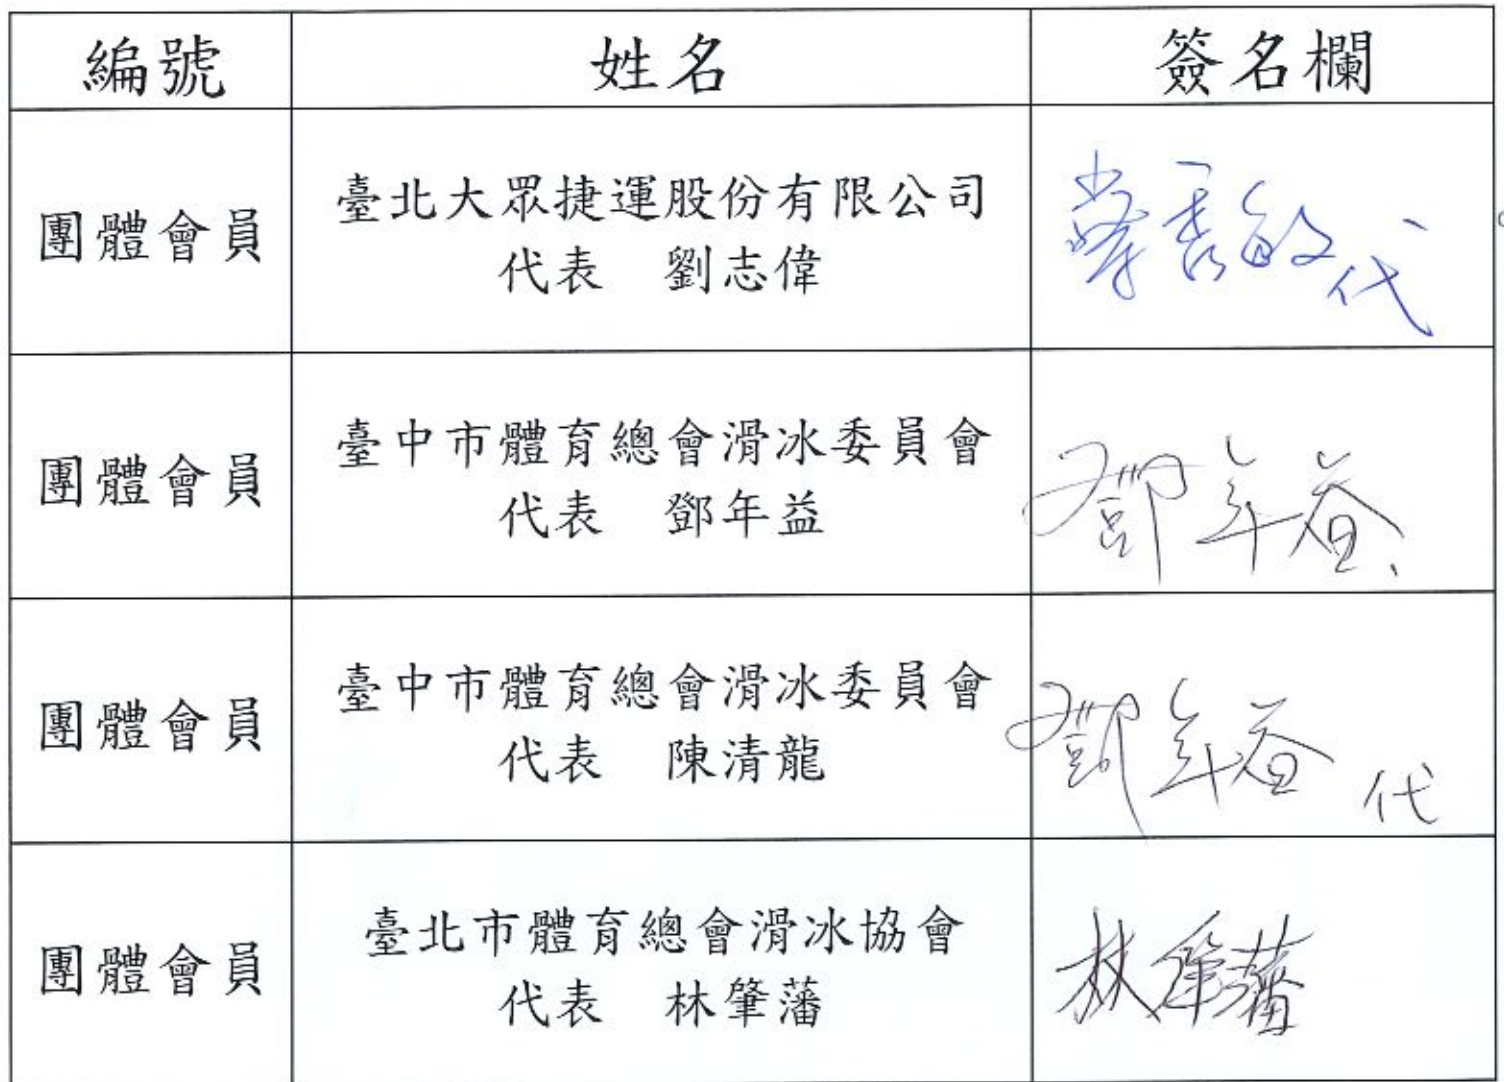 編號 姓名 簽名欄
團體會員 臺北大眾捷運股份有限公司
代表 劉志偉 代
團體會員 臺中市體育總會滑冰委員會
代表 鄧年益 鄧年益
團體會員 臺中市體育總會滑冰委員會
代表 陳清龍 鄧年益 代
團體會員 臺北市體育總會滑冰協會
代表 林肇藩 林肇藩